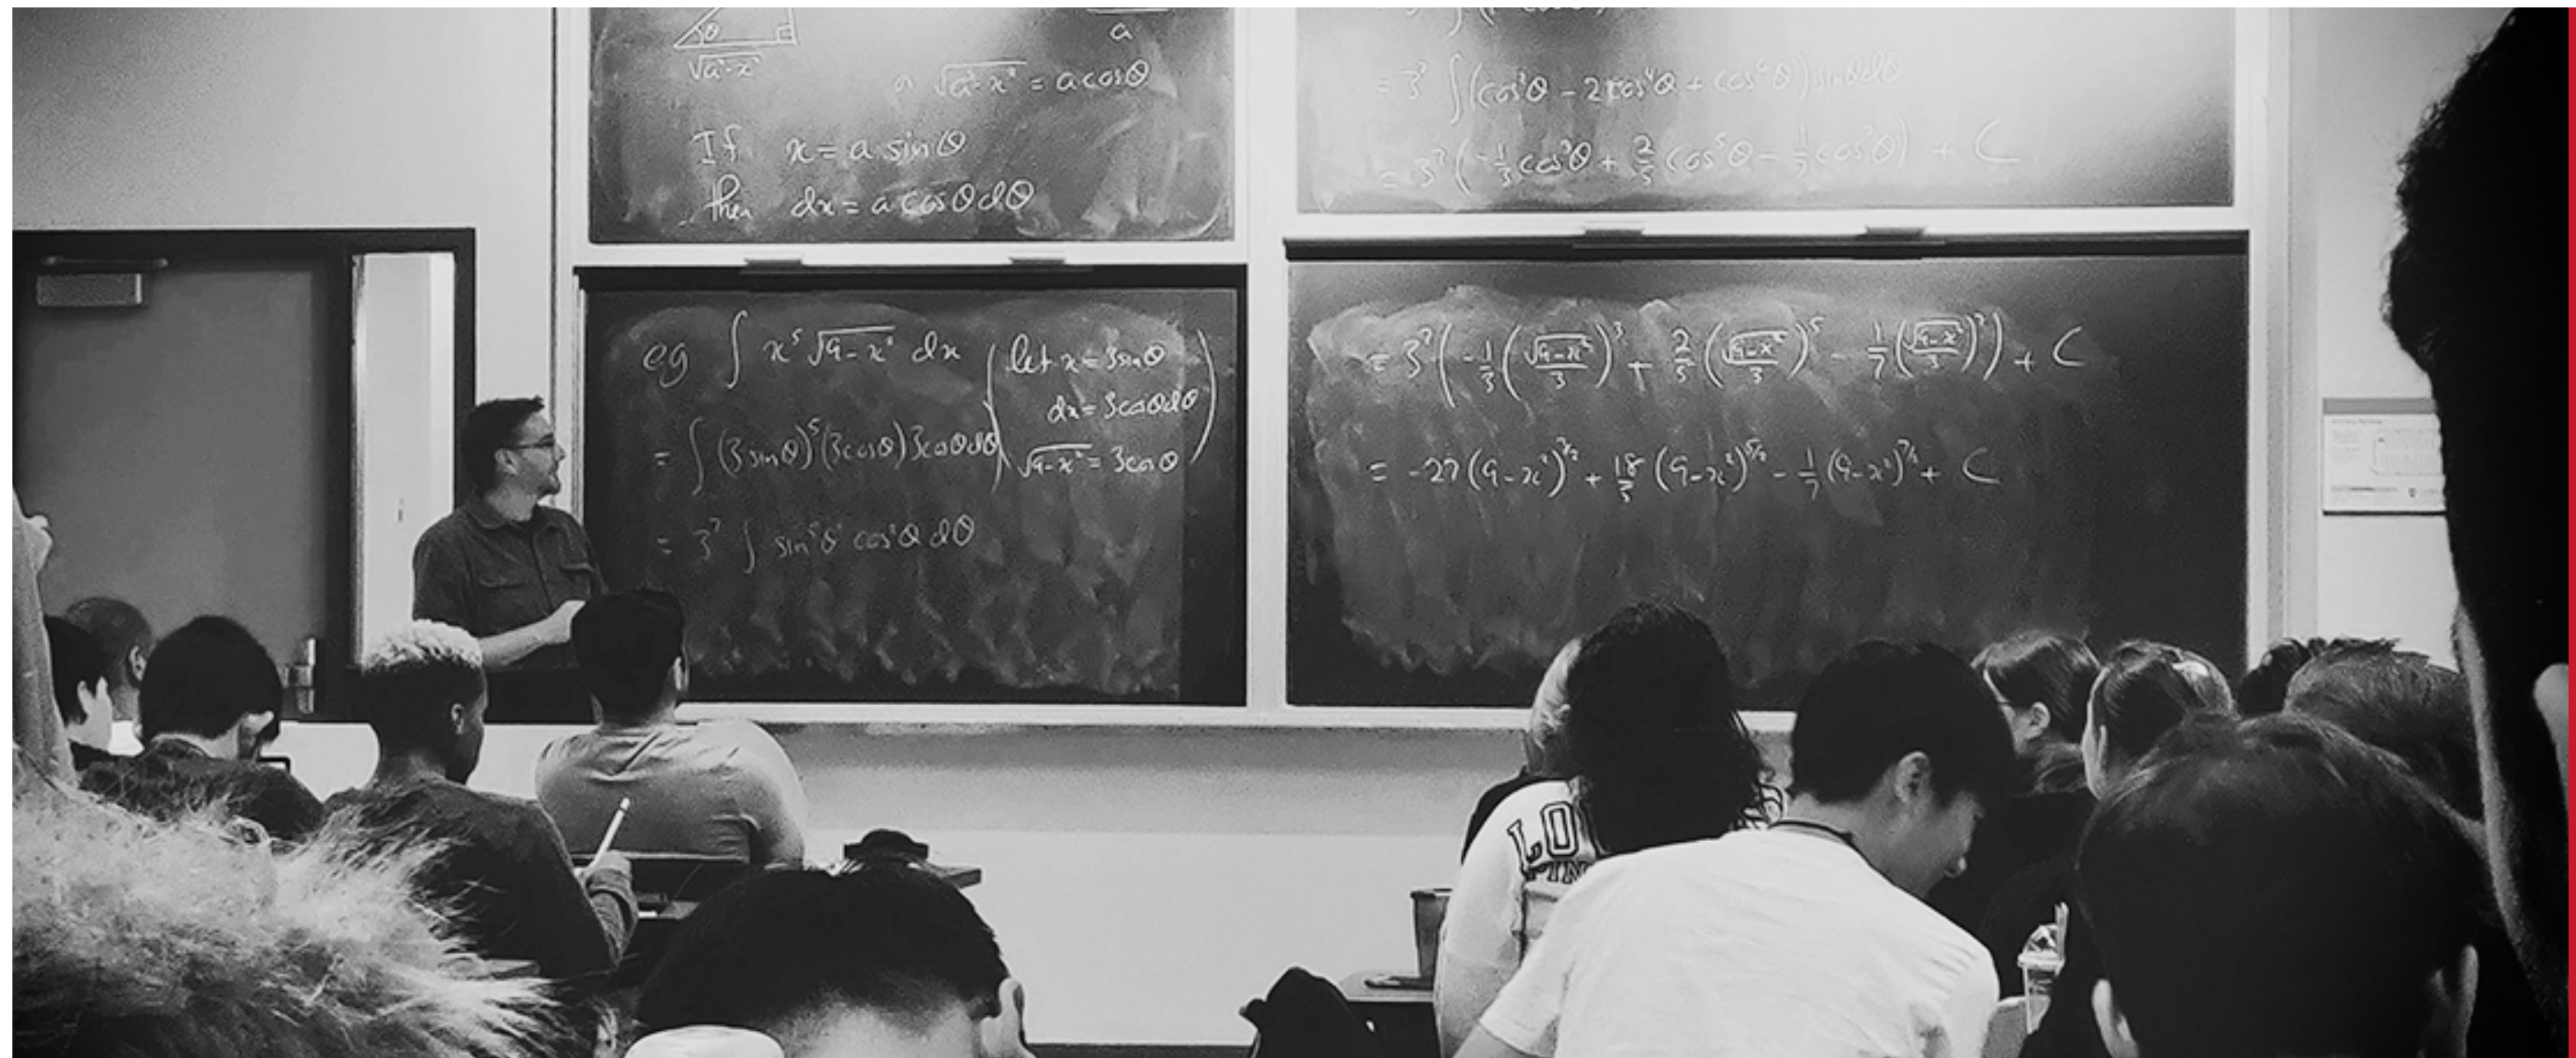 θ
√a²-x²
a
√a²-x² = a cosθ
If x = a sinθ
then dx = a cosθ dθ
eg ∫ x⁵ √9-x² dx (let x = 3sinθ
dx = 3cosθdθ
= ∫ (3sinθ)⁵(3cosθ)3cosθdθ
√9-x² = 3cosθ)
= 3⁷ ∫ sin⁵θ cos²θ dθ
= 3⁷ ∫(cos²θ - 2cos⁴θ + cos⁶θ) sinθdθ
= 3⁷ (-1/3 cos³θ + 2/5 cos⁵θ - 1/7 cos⁷θ) + C
= 3⁷(-1/3(√9-x²/3)³ + 2/5(√9-x²/3)⁵ - 1/7(√9-x²/3)⁷) + C
= -27(9-x²)^3/2 + 18/5(9-x²)^5/2 - 1/7(9-x²)^7/2 + C